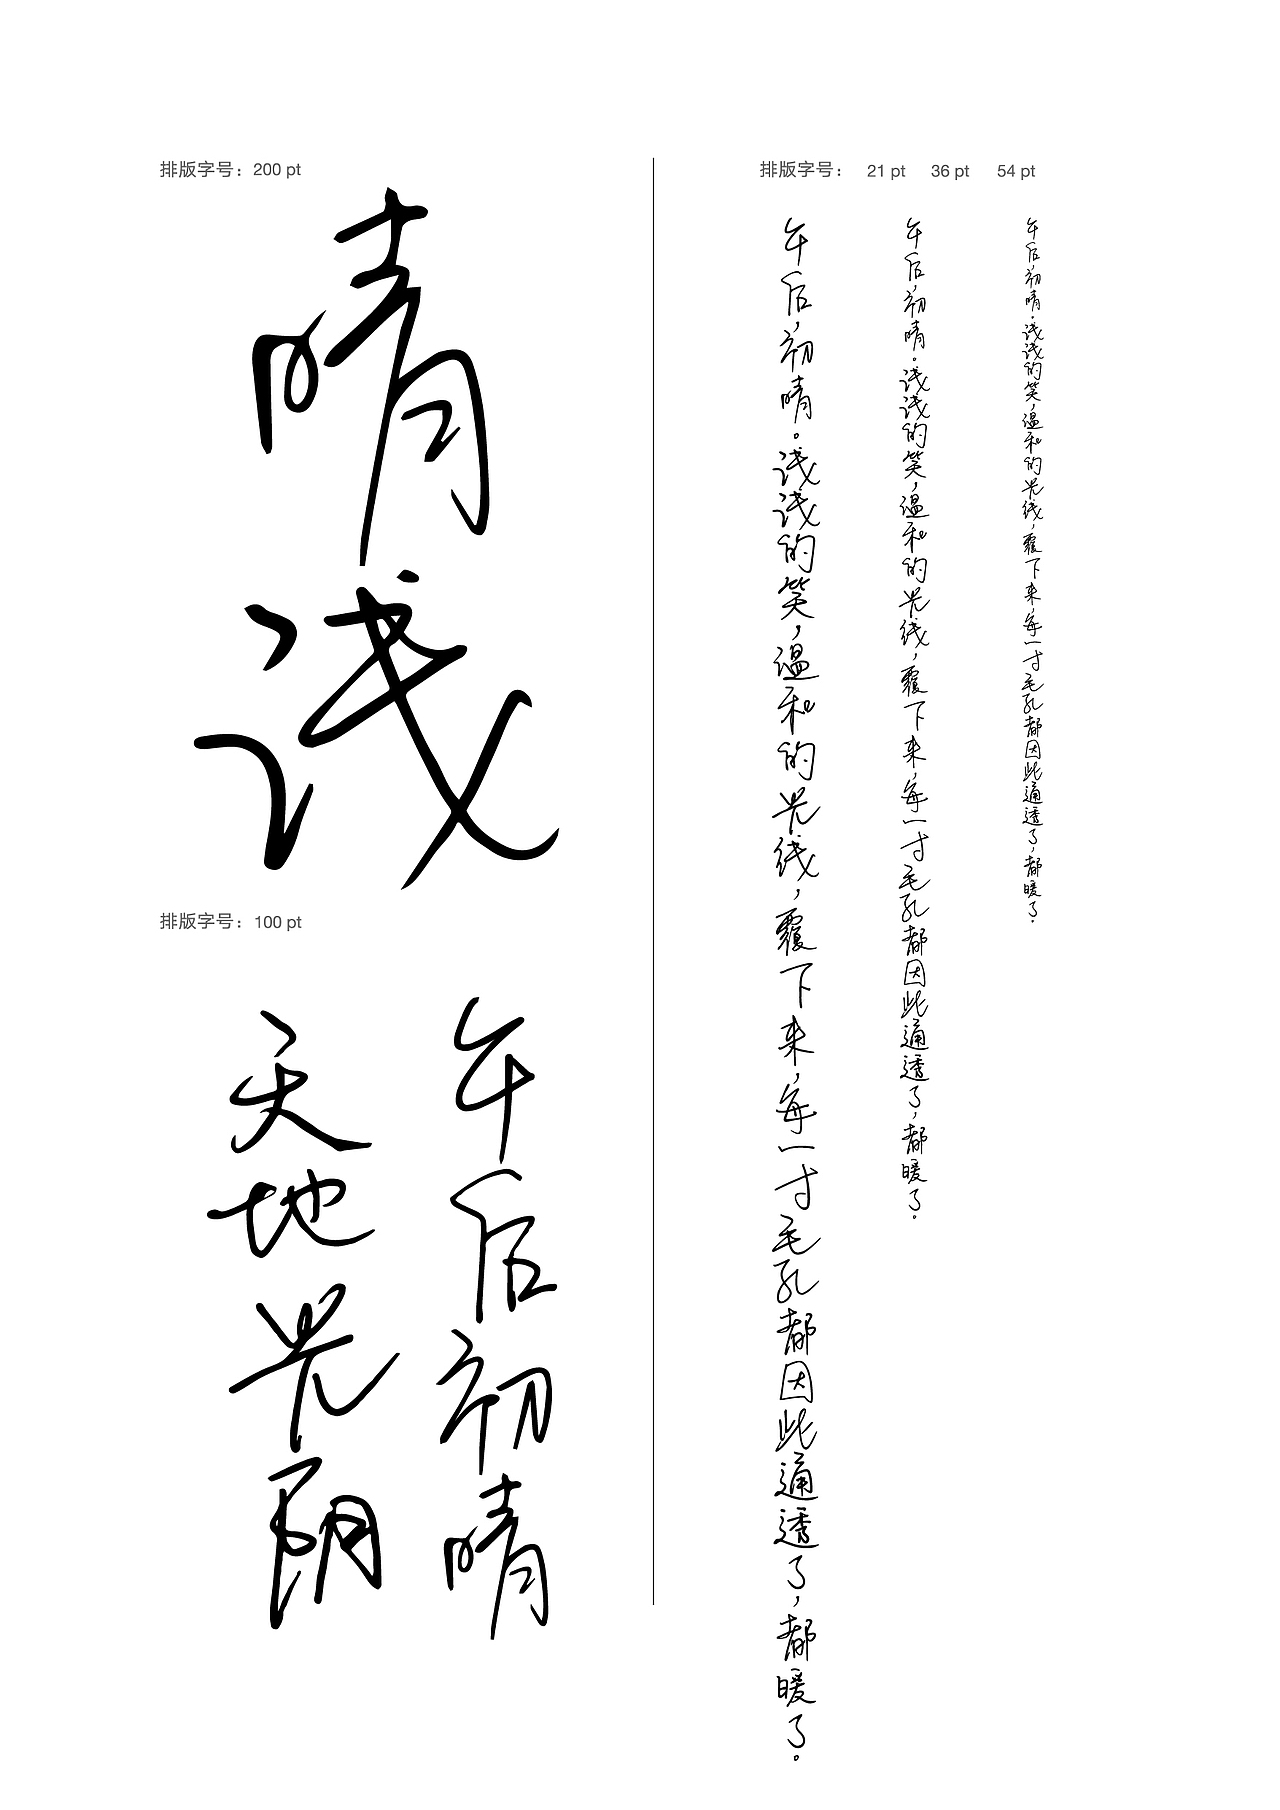 排版字号：200 pt
晴浅
排版字号：100 pt
午后初晴
天地光阴
排版字号： 21 pt 36 pt 54 pt
午后，初晴。浅浅的笑，温和的光线，覆下来，每一寸毛孔都因此通透了，都暖了。
午后，初晴。浅浅的笑，温和的光线，覆下来，每一寸毛孔都因此通透了，都暖了。
午后，初晴。浅浅的笑，温和的光线，覆下来，每一寸毛孔都因此通透了，都暖了。